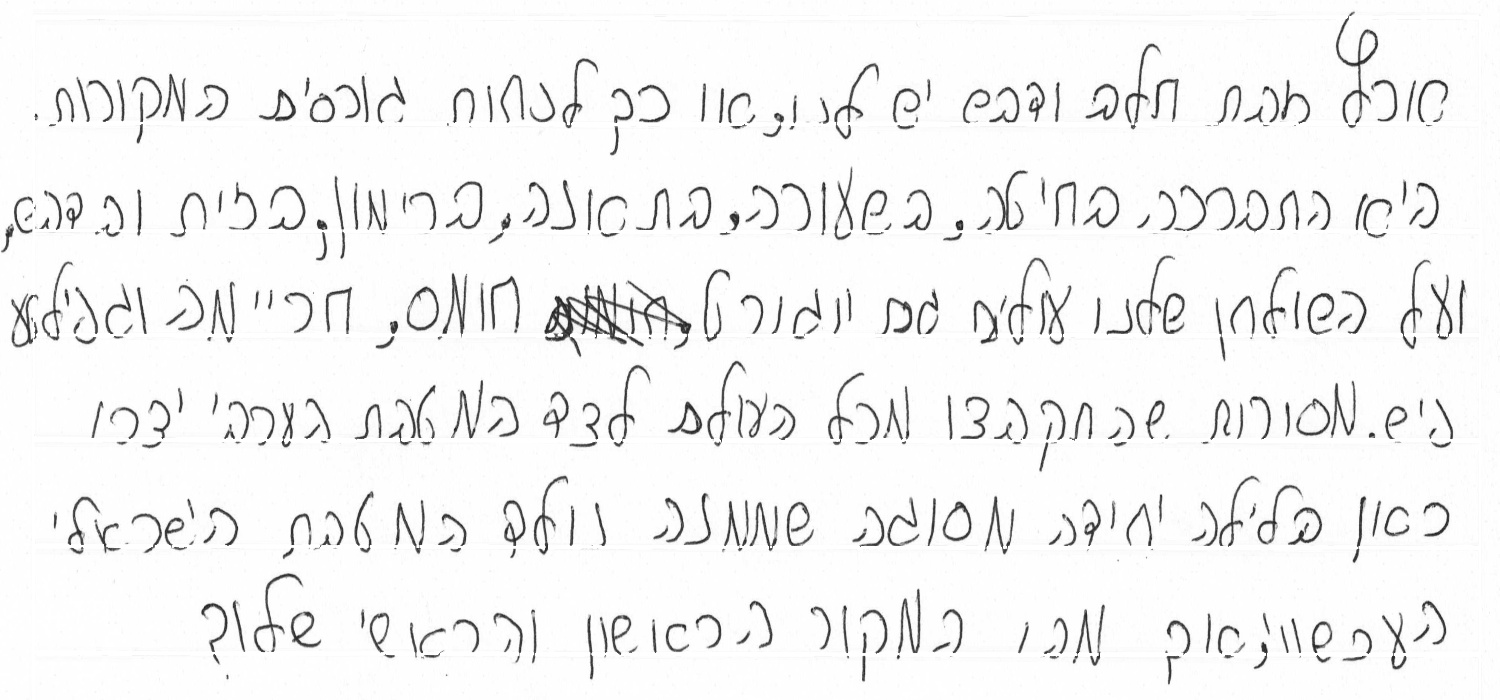 אוכל זבת חלב ודבש יש לנו, או כך לפחות גורסים המקורות.
היא התברכה בחיטה, בשעורה, בתאונה, ברימון, בזית ובדבש,
ועל השולחן שלנו עולים גם יוגורט, חומס, חריימה וגפילטע
פיש. מסורות שהתקבצו מכל העולם לצד המטבח הערבי יצרו
כאן בלילה יחידה מסוגה שממנה נולד המטבח הישראלי
העכשווי, אוק מהו המקור הראשון והראשי שלו?